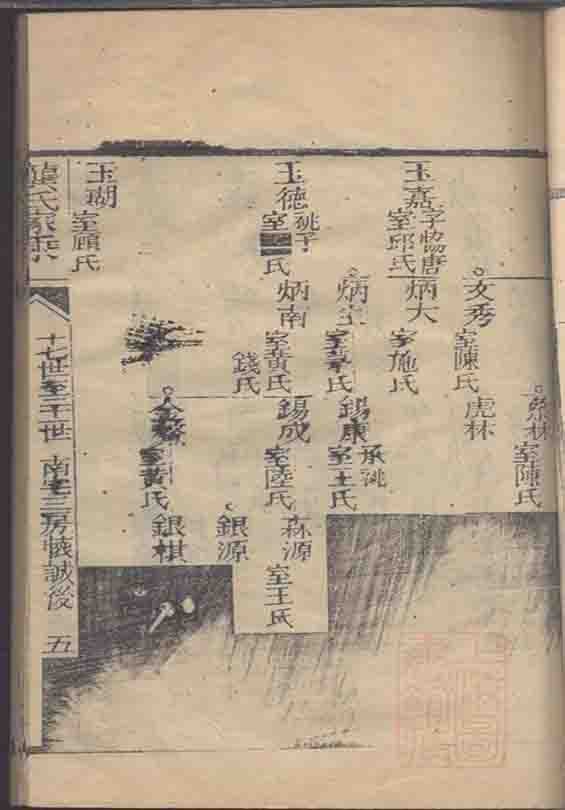 玉嘉
字協唐
室邱氏
文秀
室陳氏
室陳氏
虎林
炳大
室施氏
玉德
祧子
室
氏
炳
室
氏
炳南
室黃氏
錢氏
錫康
承祧
室王氏
錫成
室陸氏
森源
室王氏
銀源
室黃氏
銀棋
玉瑚
室顧氏
氏家乘
十七世至二十世
南宅三房
誠後
五